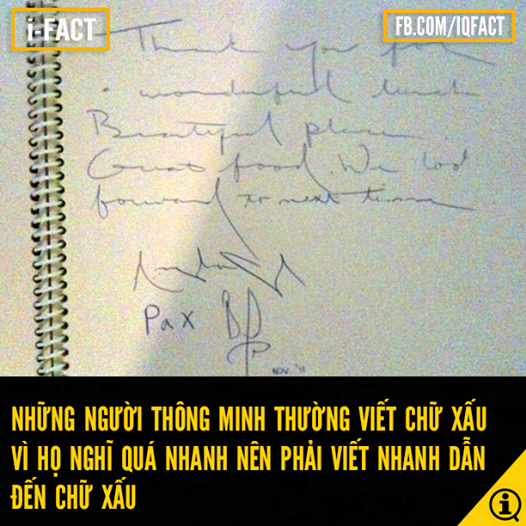 i-FACT
FB.COM/IQFACT
Thank you for
a wonderful lunch
Beautiful place.
Great food. We look
forward to next time
Pax
NOV. '11
NHỮNG NGƯỜI THÔNG MINH THƯỜNG VIẾT CHỮ XẤU
VÌ HỌ NGHĨ QUÁ NHANH NÊN PHẢI VIẾT NHANH DẪN
ĐẾN CHỮ XẤU